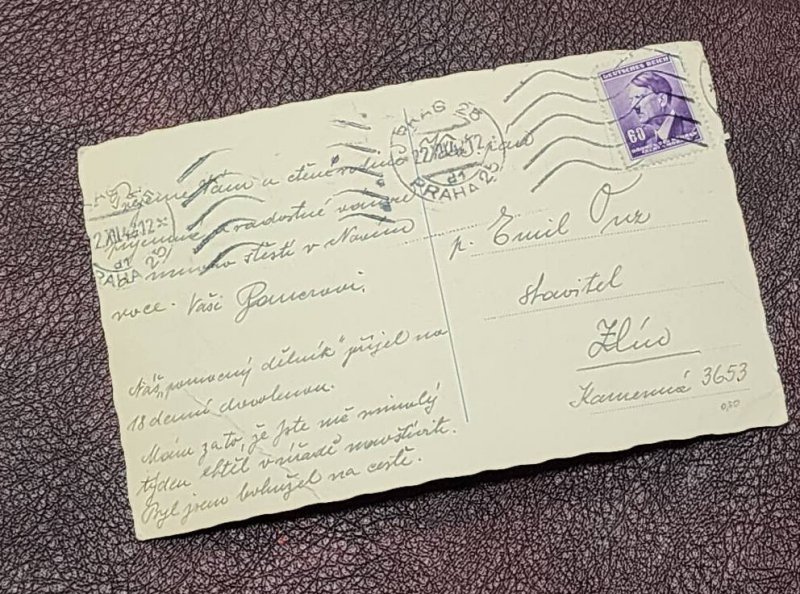 přejeme Vám a ctěné rodině
příjemné a radostné vánoce
a mnoho štěstí v Novém
roce. Vaši Pomerovi.
Náš „pomocný dělník“ přijel na
18 denní dovolenou.
Mám za to, že jste mě minulý
týden chtěl v úřadě navštívit.
Byl jsem bohužel na cestě.
PRAHA 25
DEUTSCHES REICH
60
p. Emil
stavitel
Zlín
Kamenná 3653
0,50